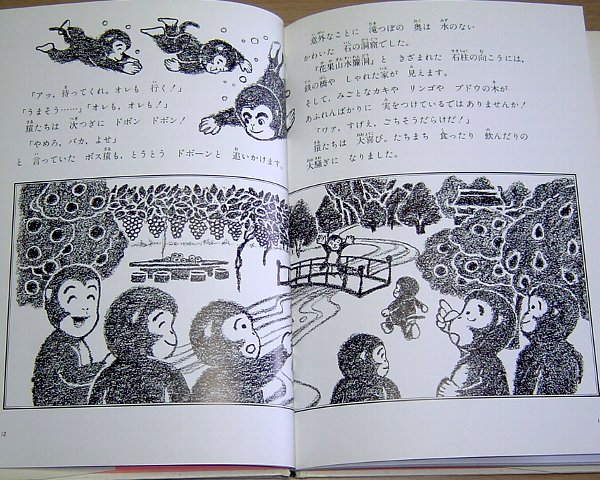 「アッ、待ってくれ、オレも 行く！」
「うまそう……」「オレも、オレも！」
猿たちは 次つぎに ドボン ドボン！
「やめろ、バカ、よせ」
と 言っていた ボス猿も、とうとう ドボーンと 追いかけます。
12
意外なことに 滝つぼの 奥は 水のない
かわいた 石の洞窟でした。
「花果山水簾洞」と きざまれた 石柱の向こうには、
鉄の橋や しゃれた家が 見えます。
そして、みごとなカキや リンゴや ブドウの木が
あふれんばかりに 実をつけているではありませんか！
「リァ、すげえ、ごちそうだらけだ！」
猿たちは 大喜び。たちまち 食ったり 飲んだりの
大騒ぎに なりました。